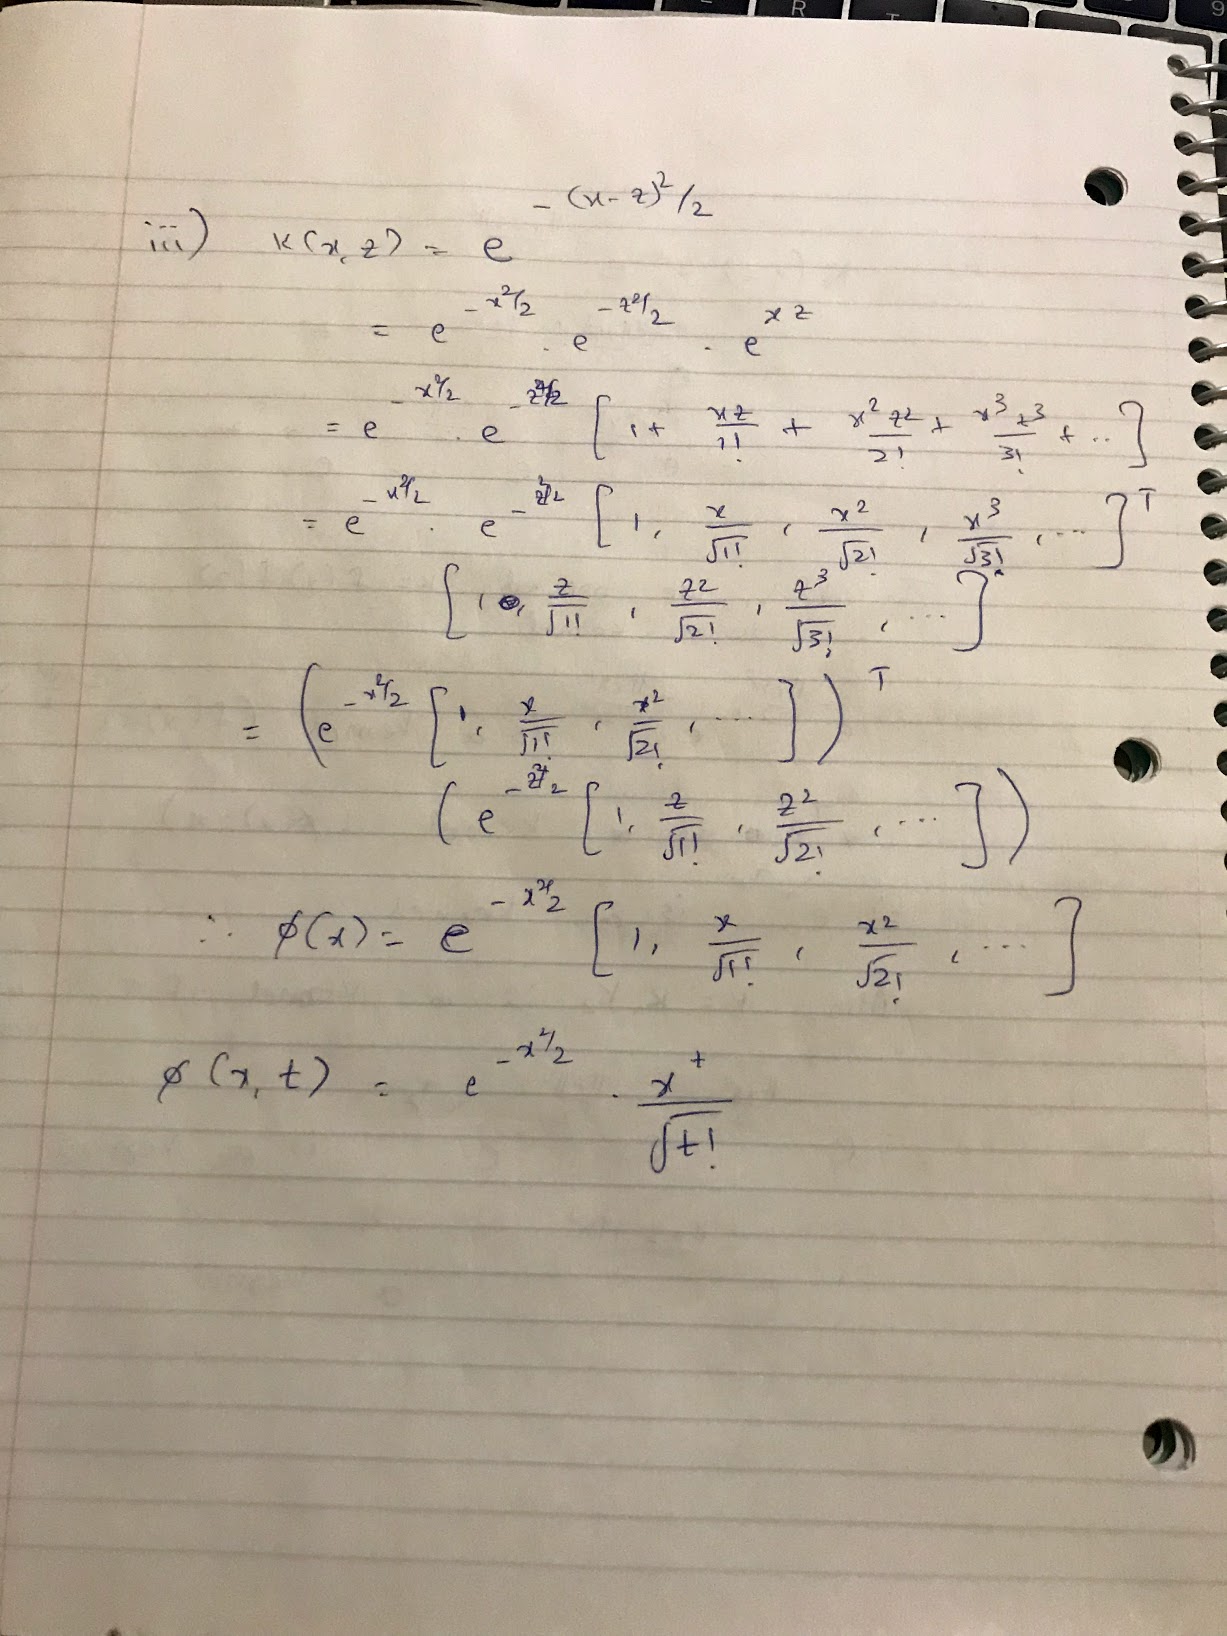 iii) K(x, z) = e^{-(x-z)^2/2}
= e^{-x^2/2} . e^{-z^2/2} . e^{xz}
= e^{-x^2/2} . e^{-z^2/2} [1 + xz/1! + x^2 z^2/2! + x^3 z^3/3! + ..]
= e^{-x^2/2} . e^{-z^2/2} [1, x/√1!, x^2/√2!, x^3/√3!, ...]^T
[1, z/√1!, z^2/√2!, z^3/√3!, ...]
= (e^{-x^2/2} [1, x/√1!, x^2/√2!, ...])^T
(e^{-z^2/2} [1, z/√1!, z^2/√2!, ...])
∴ ϕ(x) = e^{-x^2/2} [1, x/√1!, x^2/√2!, ...]
ϕ(x, t) = e^{-x^2/2} . x^t/√t!